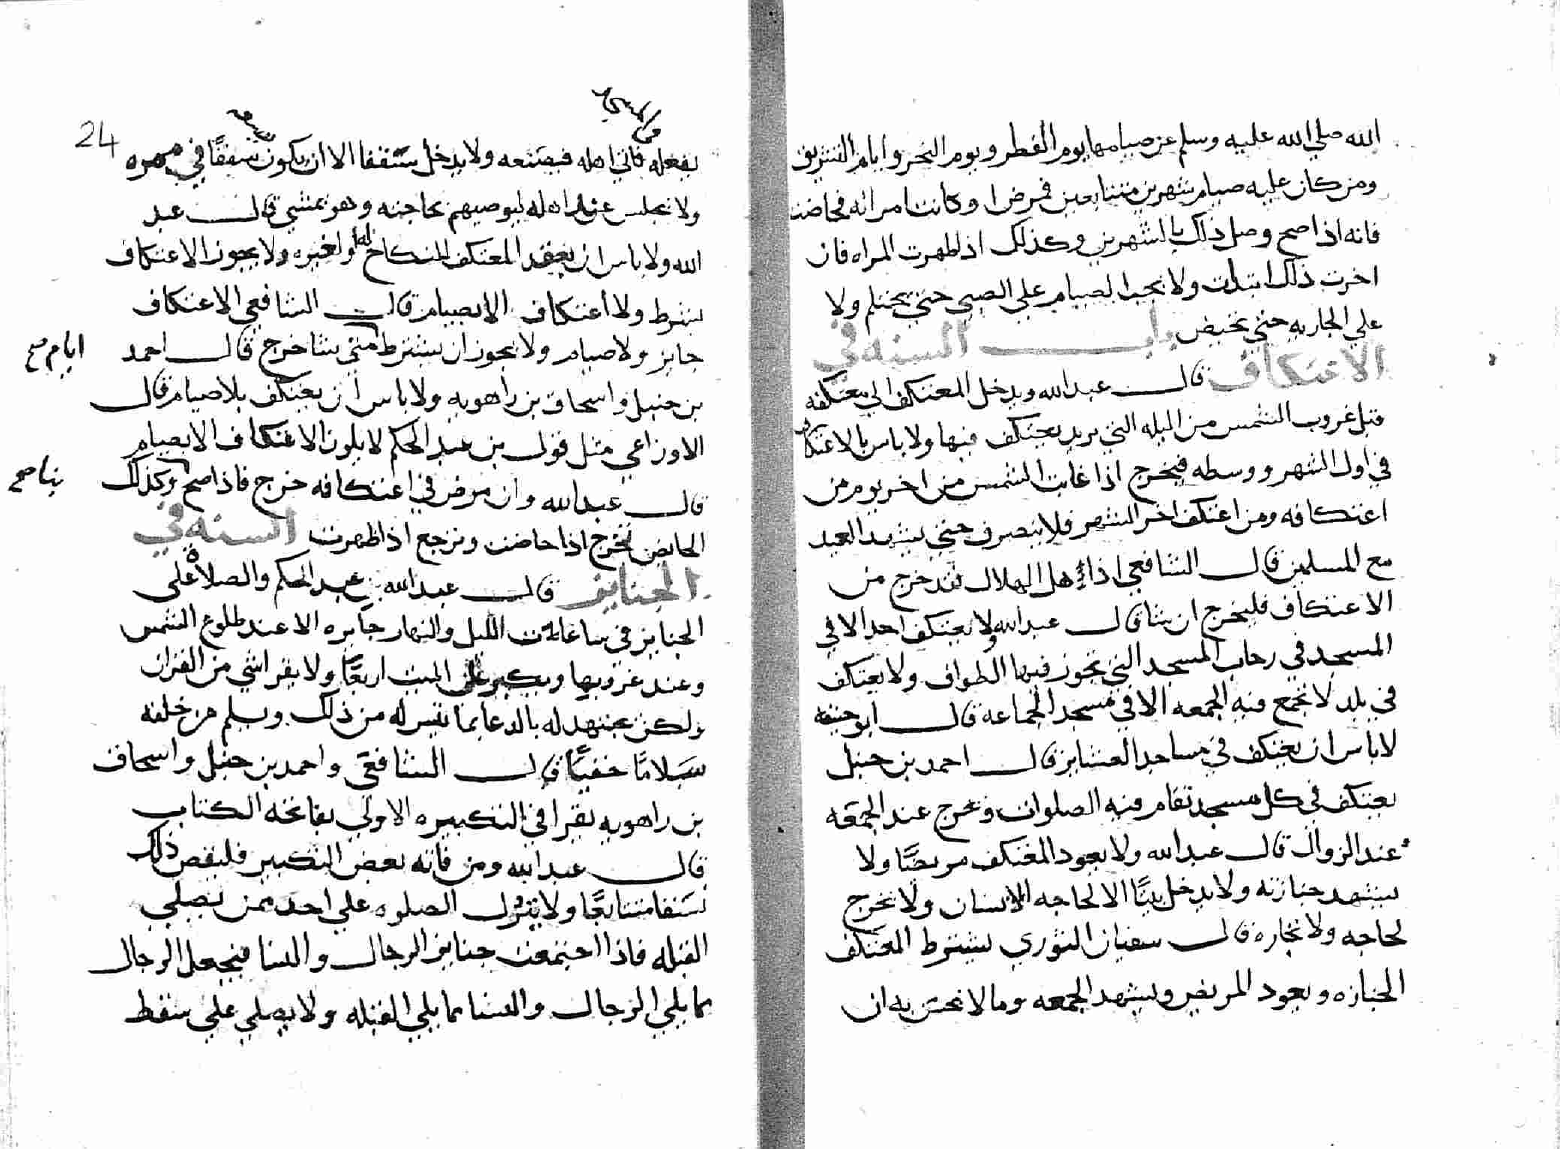 الله صلي الله عليه وسلم عن صيامها يوم الفطر ويوم النحر وايام التشريق
ومن كان عليه صيام شهرين متتابعين فمرض او كانت امراه فحاضت
فانه اذا صح وصل ذلك بالشهرين وكذلك اذا طهرت المراه فان
اخرت ذلك ابتدات ولا يجب الصيام علي الصبي حتي يحتلم ولا
علي الجاريه حتي تحيض باب السنه في
الاعتكاف قال عبد الله ويدخل المعتكف الي معتكفه
قبل غروب الشمس من الليله التي يريد يعتكف فيها ولا باس بالاعتكاف
في اول الشهر ووسطه فيخرج اذا غابت الشمس من اخر يوم من
اعتكافه ومن اعتكف اخر الشهر فلا ينصرف حتي يشهد العيد
مع المسلمين قال الشافعي اذا هل الهلال فقد خرج من
الاعتكاف فليخرج ان شا قال عبد الله ولا يعتكف احد الا في
المسجد وفي رحاب المسجد التي تجوز فيها الطواف ولا يعتكف
في بلد لا تجمع فيه الجمعه الا في مسجد الجماعه قال ابو حنيفه
لا باس ان يعتكف في مساجد العشاير قال احمد بن حنبل
يعتكف في كل مسجد تقام فيه الصلوات وتخرج عند الجمعه
عند الزوال قال عبد الله ولا يعود المعتكف مريضًا ولا
يشهد جنازته ولا يدخل بيتًا الا لحاجه الانسان ولا يخرج
لحاجه ولا تجاره قال سفيان الثوري يشترط المعتكف
الجنازه ويعود المريض ويشهد الجمعه وما لا يحسن به ان
24
في المسجد
يفعله فاتي اهله فيصنعه ولا يدخل سقفا الا ان يكون سقفًا في ممره
ولا يجلس عند اهله ليوصيهم بحاجته وهو يمشي قال عبد
الله ولا باس ان يعقد المعتكف النكاح له او لغيره ولا يجوز الاعتكاف
بشرط ولا اعتكاف الا بصيام قال الشافعي الاعتكاف
جايز ولا صيام ولا يجوز ان يشترط متي شا خرج قال احمد
ايام صح
بن حنبل واسحاق بن راهويه ولا باس ان يعتكف بلا صيام قال
الاوزاعي مثل قول بن عبد الحكم لا يكون الاعتكاف الا بصيام
قال عبد الله وان مرض في اعتكافه خرج فاذا صح وكذلك
بنا صح
الحايض تخرج اذا حاضت وترجع اذا طهرت السنه في
الجنايز قال عبد الله بن عبد الحكم والصلاه علي
الجنايز في ساعات الليل والنهار جايزه الا عند طلوع الشمس
وعند غروبها ويكبر علي الميت اربعًا ولا يقرا شي من القران
ولكن يجتهد له بالدعا بما تيسر له من ذلك ويسلم من خلفه
سلامًا خفيًا قال الشافعي واحمد بن حنبل واسحاق
بن راهويه يقرا في التكبيره الاولي بفاتحه الكتاب
قال عبد الله ومن فاته بعض التكبير فليقض ذلك
نسقا متتابعًا ولا يترك الصلوه علي احد ممن يصلي
القبله فاذا اجتمعت جنايز الرجال والنسا فيجعل الرجال
مما يلي الرجال والنسا مما يلي القبله ولا يصلي علي سقط